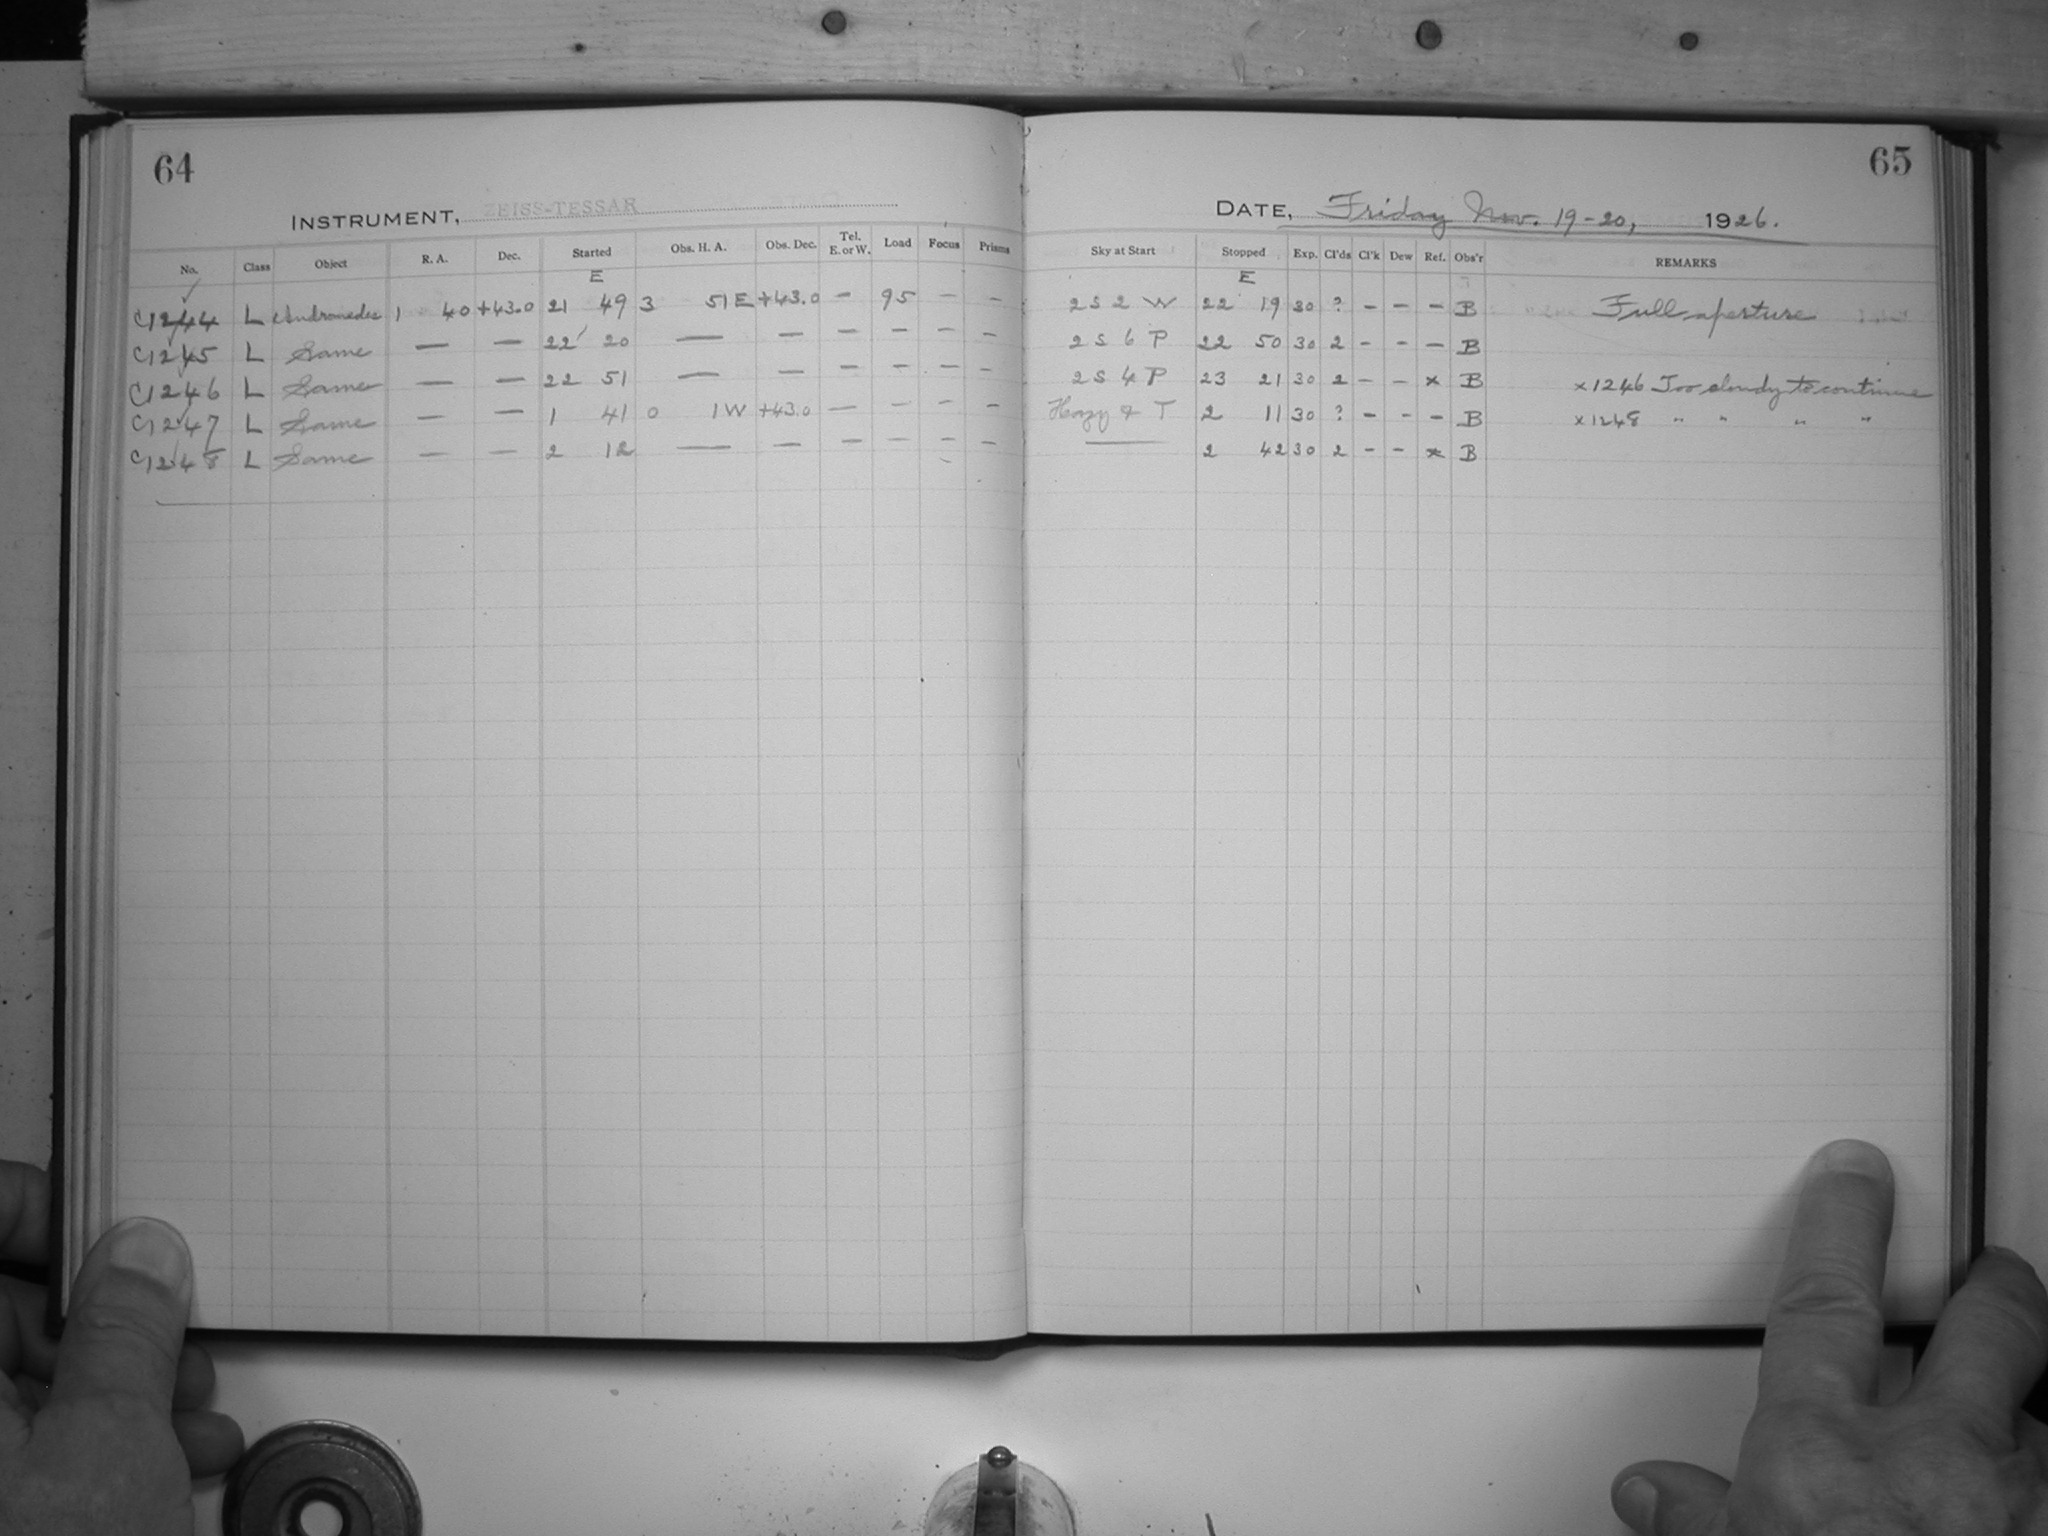 64
INSTRUMENT, ZEISS-TESSAR
No. Class Object R. A. Dec. Started Obs. H. A. Obs. Dec. Tel. E. or W. Load Focus Prisms
E
C1244 L Andromedae 1 40 +43.0 21 49 3 51 E +43.0 – 95 – –
C1245 L Same — — 22 20 — — — – – –
C1246 L Same — — 22 51 — — — – – –
C1247 L Same — — 1 41 0 1 W +43.0 — – – –
C1248 L Same — — 2 12 — — — – – –
65
DATE, Friday Nov. 19-20, 1926.
Sky at Start Stopped Exp. Cl'ds Cl'k Dew Ref. Obs'r REMARKS
E
2 S 2 W 22 19 30 ? – – – B Full aperture
2 S 6 P 22 50 30 2 – – – B
2 S 4 P 23 21 30 2 – – x B x 1246 Too cloudy to continue
Hazy & T 2 11 30 ? – – – B x 1248 " " " "
— 2 42 30 2 – – x B